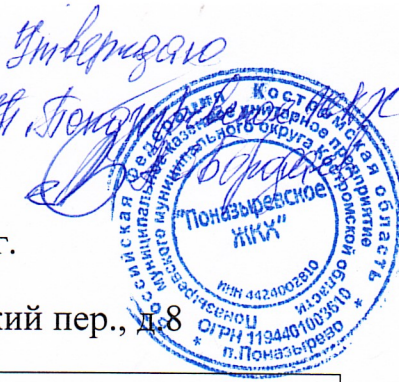 Утверждаю
Российская Федерация Костромская область
муниципальное казенное унитарное предприятие
Поназыревского муниципального округа Костромской области
"Поназыревское
ЖКХ"
ИНН 4424002810
ОГРН 1194401003610
* п.Поназырево *
г.
кий пер., д.8